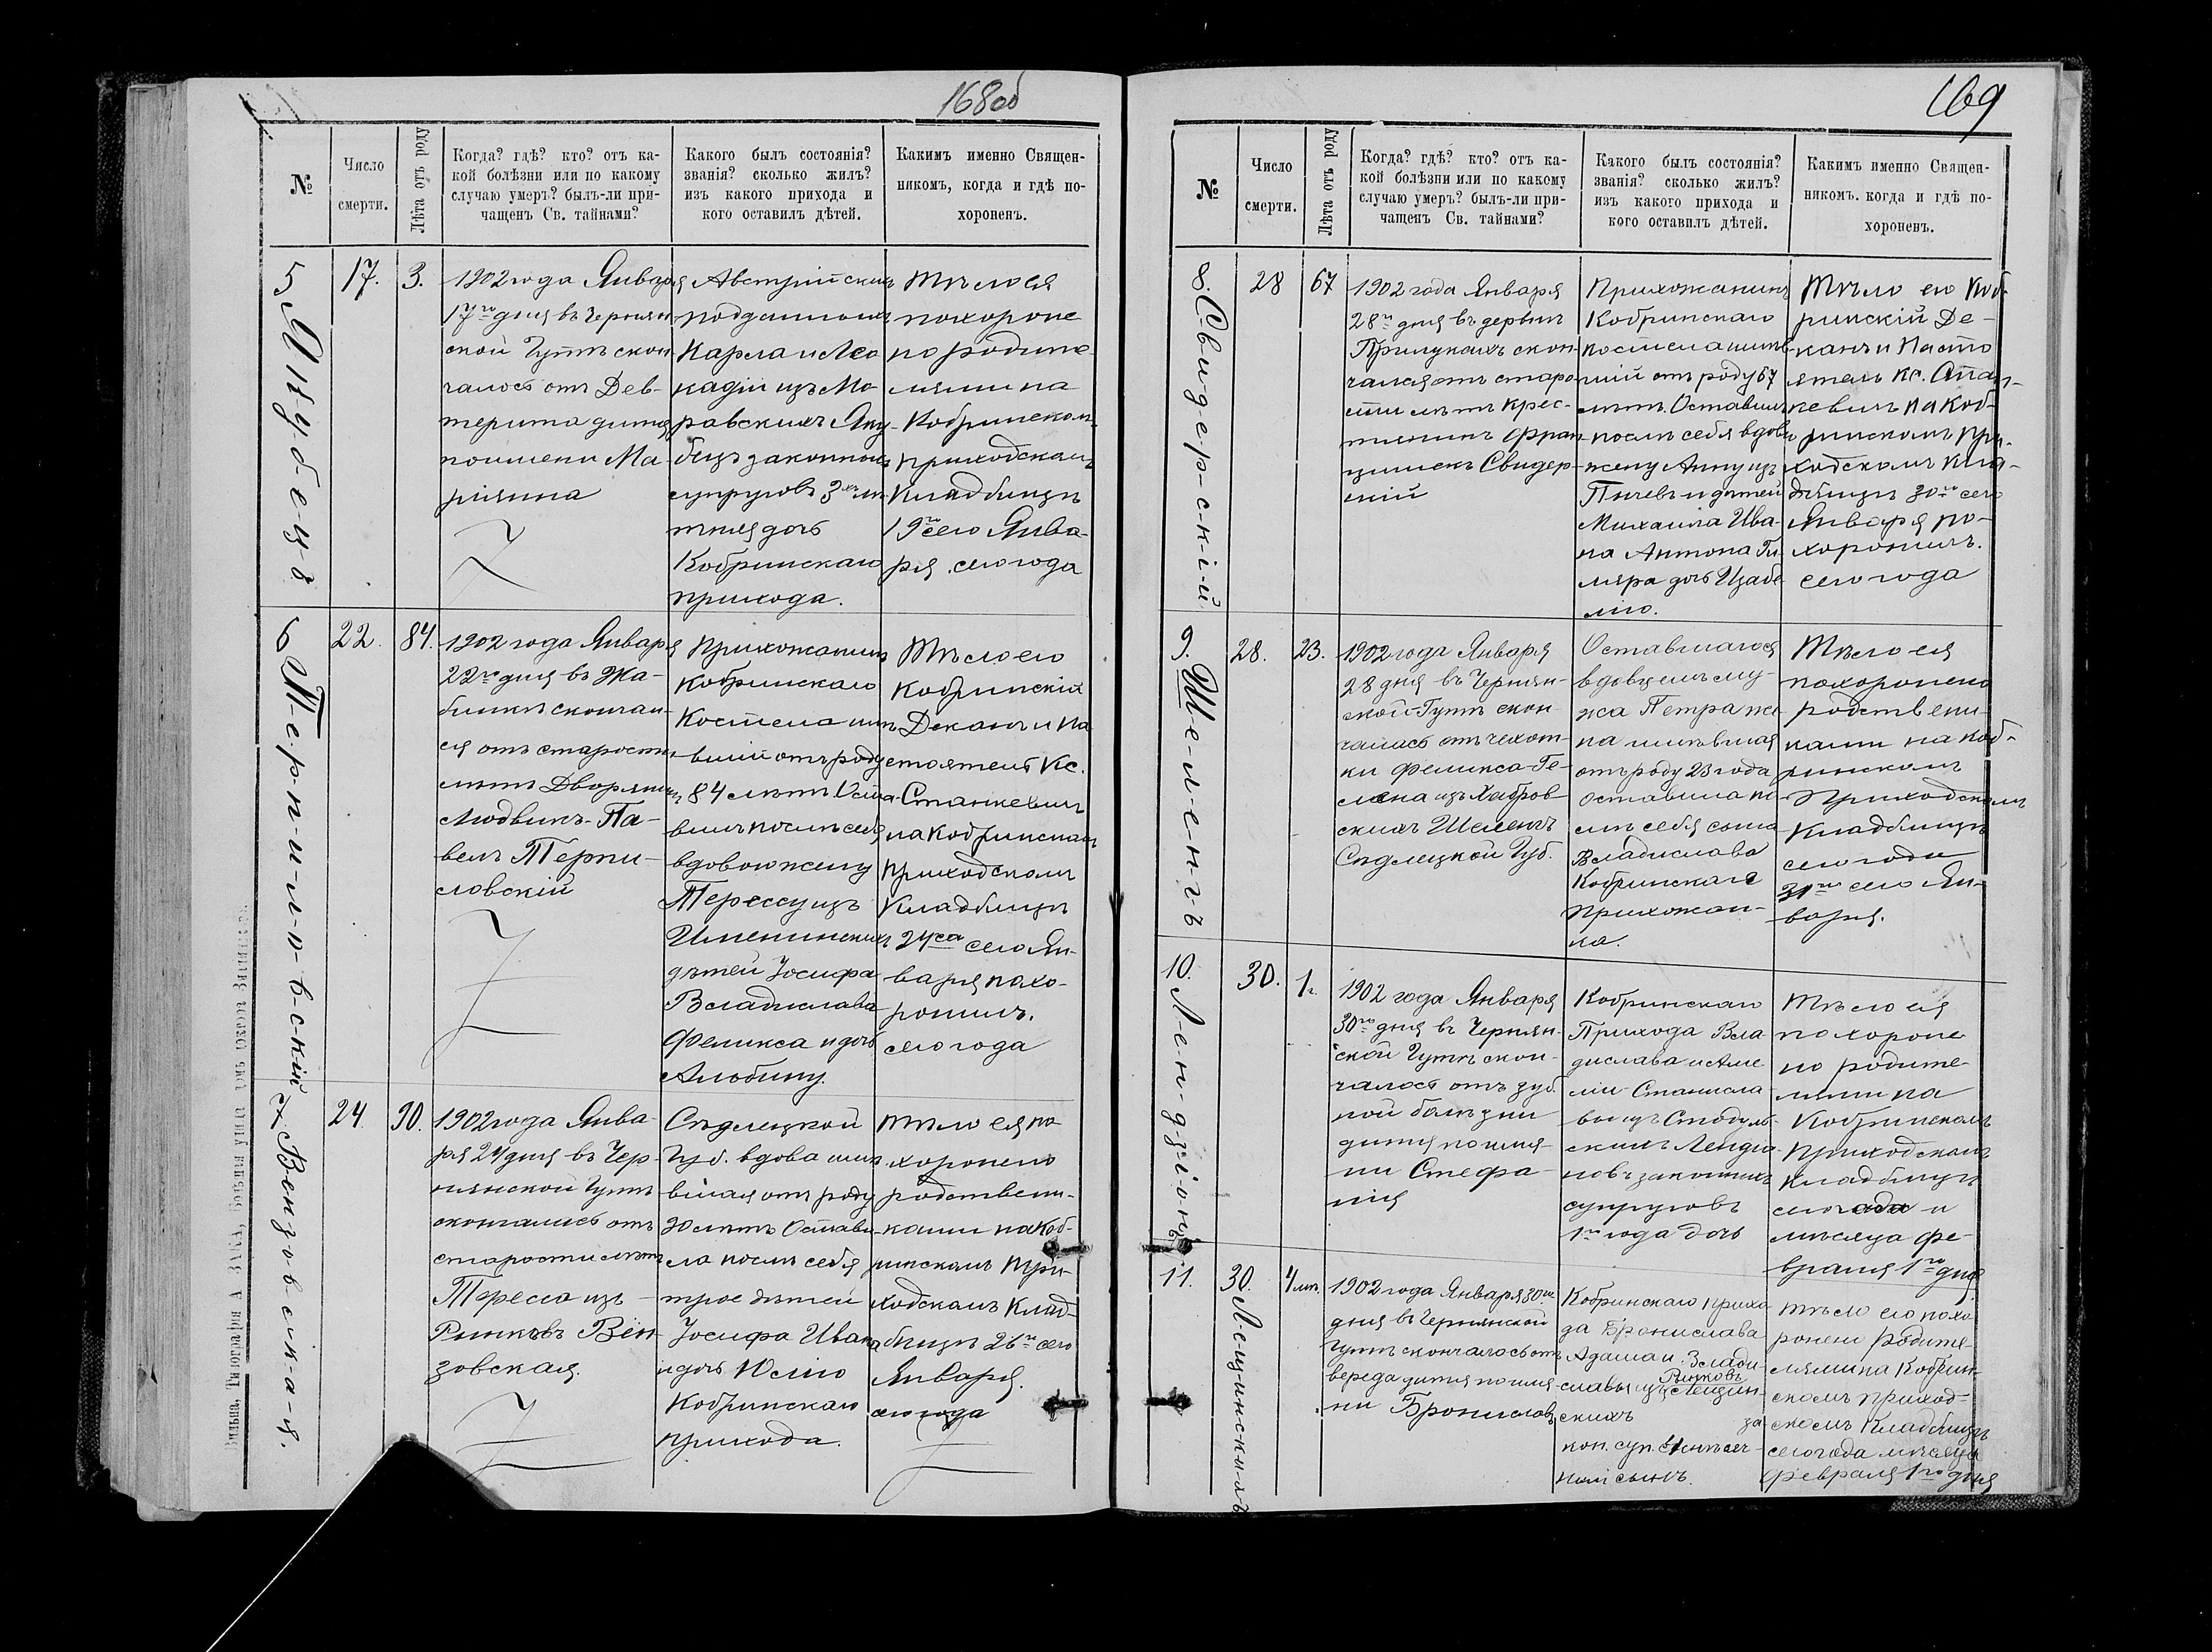 168об
№
Число
смерти.
Лѣта отъ роду
Когда? гдѣ? кто? отъ ка-
кой болѣзни или по какому
случаю умеръ? былъ-ли при-
чащенъ Св. тайнами?
Какого былъ состоянія?
званія? сколько жилъ?
изъ какого прихода и
кого оставилъ дѣтей.
Какимъ именно Священ-
никомъ, когда и гдѣ по-
хороненъ.
5 Якубецъ
17.
3.
1902 года Января
17го дня въ Чернян
ской Гутѣ скон
чалось отъ Дев-
терита дитя
поимени Ма-
ріянна
Австрійскихъ
подданныхъ
Карла и Лео
кадіи изъ Мо
равскихъ Яку-
бецъ законныхъ
супруговъ 3хъ лѣ
тняя дочь
Кобринскаго
прихода.
Тѣло ея
похороне
но родите
лями на
Кобринскомъ
приходскомъ
Кладбищѣ
19го сего Янва-
ря сего года
6 Терпиловскій
22.
84.
1902 года Января
22го дня въ Жа-
бинкѣ сконча-
ся отъ старости
лѣтъ Дворянинъ
Людвикъ-Па-
велъ Терпи-
ловскій
Прихожанинъ
Кобринскаго
Костела имѣ
вшій отъ роду
84 лѣтъ. Оста-
вилъ послѣ себя
вдовою жену
Терессу изъ
Именинскихъ
дѣтей Іосифа
Владислава
Феликса и дочь
Альбину.
Тѣло его
Кобринскій
Деканъ и На
стоятель Кс.
Станкевичъ
на Кобринскомъ
приходскомъ
Кладбищѣ
24го сего Ян-
варя похо-
ронилъ.
сего года
7 Вензовская.
24
90.
1902 года Янва-
ря 24 дня въ Чер-
нянской Гутѣ
скончалась отъ
старости лѣтъ
Тересса изъ
Рынкѣвъ Вен-
зовская.
Сѣдлецкой
Губ. вдова имѣ
вшая отъ роду
90 лѣтъ Остави-
ла послѣ себя
трое дѣтей
Іосифа Ивана
и дочь Юлію
Кобринскаго
прихода.
Тѣло ея по
хоронено
родствен-
ками на Коб-
ринскомъ При-
ходскомъ Клад-
бищѣ 26го сего
Января.
сего года
Вильна, Типографія А.
169
№
Число
смерти.
Лѣта отъ роду
Когда? гдѣ? кто? отъ ка-
кой болѣзни или по какому
случаю умеръ? былъ-ли при-
чащенъ Св. тайнами?
Какого былъ состоянія?
званія? сколько жилъ?
изъ какого прихода и
кого оставилъ дѣтей.
Какимъ именно Священ-
никомъ. когда и гдѣ по-
хороненъ.
8. Свидерскій
28
67
1902 года Января
28го дня въ дервнѣ
Прилукахъ скон-
чался отъ старо
сти лѣтъ Крес-
тянинъ Фран
цишекъ Свидер-
скій
Прихожанинъ
Кобринскаго
костела имѣв-
шій отъ роду 67
лѣтъ. Оставилъ
послѣ себя вдову
жену Анну изъ
и дѣтей
Михаила Ива
на Антона Ги
ляра дочь Изабе
лію.
Тѣло его Коб-
ринскій Де-
канъ и Насто
ятель Кс. Стан-
кевичъ на Коб-
ринскомъ при-
ходскомъ Кла-
дбищѣ 30го сего
Января по-
хоронилъ.
сего года
9. Шеленгъ
28.
23.
1902 года Января
28 дня въ Чернян-
ской-Гутѣ скон-
чалась отъ чехот-
ки Феликса-Ге-
лена изъ Хабров-
скихъ Шеленгъ
Сѣдлецкой Губ.
Оставшагося
вдовцемъ му-
жа Петра же
на имѣвшая
отъ роду 23 года
оставила по
слѣ себя сына
Владислава
Кобринская
прихожан-
ка.
Тѣло ея
похоронено
родствени-
ками на Коб-
ринскомъ
Приходскомъ
Кладбищѣ
сего года
31го сего Ян-
варя.
10. Лендзіонъ
30.
1г.
1902 года Января
30го дня въ Чернян-
ской Гутѣ скон-
чалось отъ зуб.
ной болѣзни
дитя по име-
ни Стефа-
нія
Кобринскаго
Прихода Вла
дислава и Аме
ліи Станисла
вы изъ Стодуль-
скихъ Лендзіо-
новъ законныхъ
супруговъ
1го года дочь
Тѣло ея
похороне
но родите-
лями на
Кобринскомъ
Приходскомъ
Кладбищѣ
сего года и
мѣсяца Фе-
враля 1го дня
11. Лещинскихъ
30.
4 мѣ.
1902 года Января 30го
дня въ Чернянской
Гутѣ скончалось отъ
вереда дитя по име-
ни Брониславъ
Кобринскаго прихо
да Бронислава
Адама и Влади-
славы изъ Рынковъ Лещин-
скихъ за
кон. суп. 4 мѣсяч-
ной сынъ.
Тѣло его похо
ронен родите-
лями на Кобрин-
скомъ приход-
скомъ Кладбищѣ
сего года мѣсяца
Февраля 1го дня